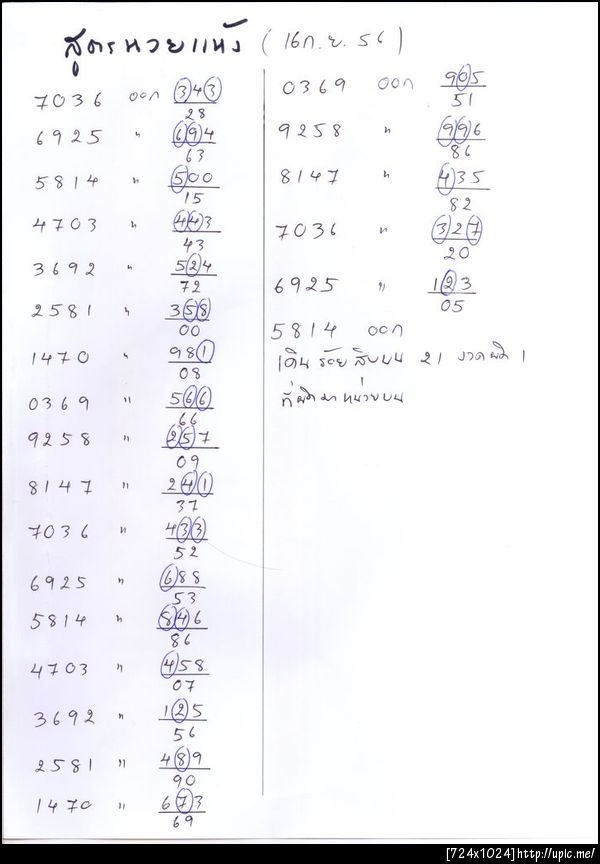 สูตรหวยแห้ง (16ก.ย.56)
7036 ออก 343
28
6925 " 694
63
5814 " 500
15
4703 " 443
43
3692 " 524
72
2581 " 358
00
1470 " 981
08
0369 " 566
66
9258 " 257
09
8147 " 241
37
7036 " 433
52
6925 " 688
53
5814 " 846
86
4703 " 458
07
3692 " 125
56
2581 " 489
90
1470 " 673
69
0369 ออก 905
51
9258 " 996
86
8147 " 435
82
7036 " 327
20
6925 " 123
05
5814 ออก
เดินร้อยสิบบน 21 งวดผิด 1
ที่ผิดมาหน่วยบน
[724x1024]http://upic.me/